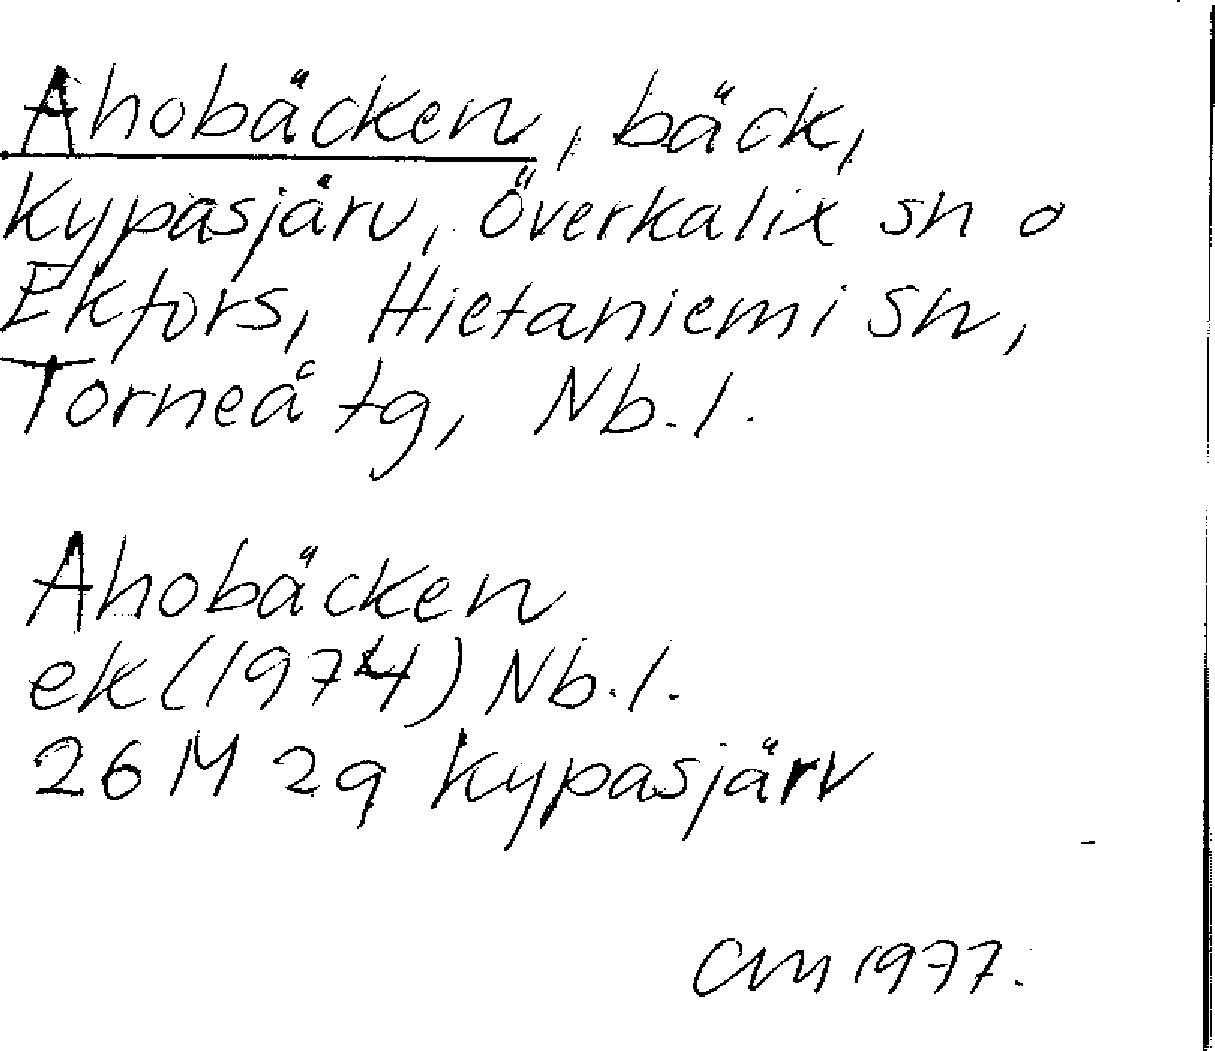 Ahobäcken, bäck,
Kypasjärv, Överkalix sn o
Ekfors, Hietaniemi sn,
Torneå tg, Nb. l.
Ahobäcken
ek (1974) Nb. l.
26 M 2g Kypasjärv
CM 1977.